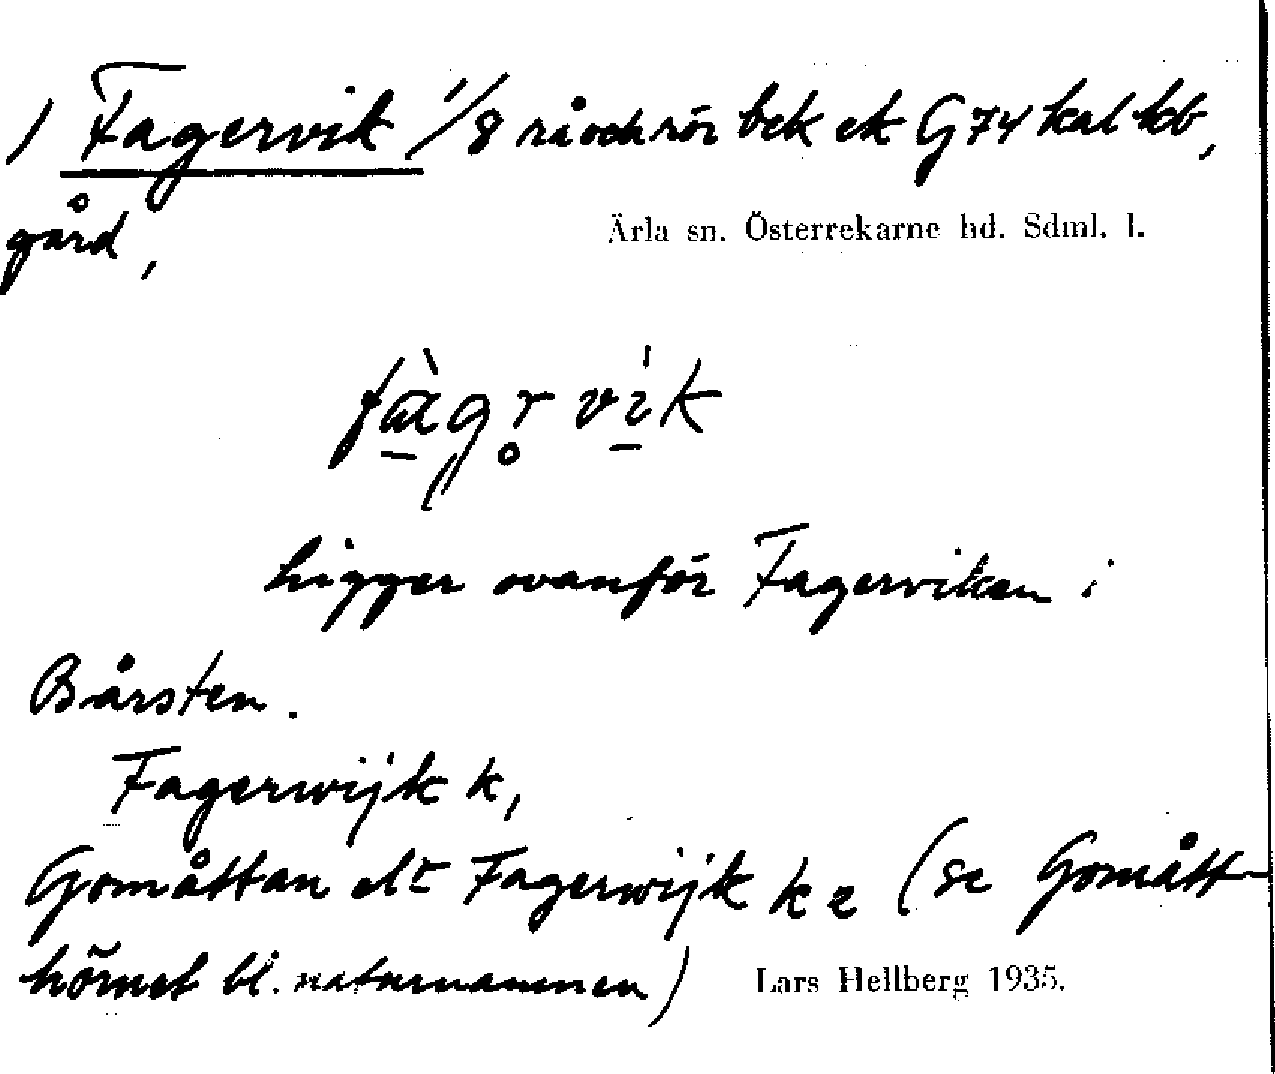 1) Fagervik 1/8 rå och rör bek ek G74 kal kb,
gård,
Ärla sn. Österrekarne hd. Sdml. l.
fàgr̥ vík
ligger ovanför Fagerviken i
Bårsten.
Fagerwijk k,
Gomåttan elr Fagerwijk k 2 (se Gomått-
hörnet bl. naturnamnen)
Lars Hellberg 1935.